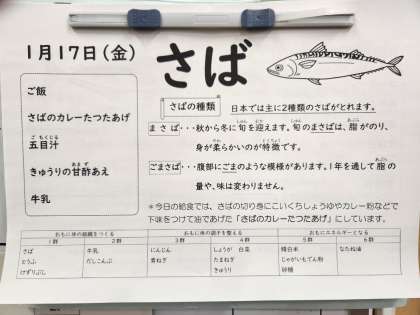 1月17日(金)
さば
ご飯
さばのカレーたつたあげ
五目汁
きゅうりの甘酢あえ
牛乳
さばの種類
日本では主に2種類のさばがとれます。
まさば・・・秋から冬に旬を迎えます。旬のまさばは、脂がのり、
身が柔らかいのが特徴です。
ごまさば・・・腹部にごまのような模様があります。1年を通して脂の
量や、味は変わりません。
*今日の給食では、さばの切り身にこいくちしょうゆやカレー粉などで
下味をつけて油であげた「さばのカレーたつたあげ」にしています。
おもに体の組織をつくる おもに体の調子を整える おもにエネルギーとなる
1群 2群 3群 4群 5群 6群
さば 牛乳 にんじん しょうが 白菜 精白米 なたね油
とうふ だしこんぶ 青ねぎ たまねぎ じゃがいもでん粉
けずりぶし きゅうり 砂糖